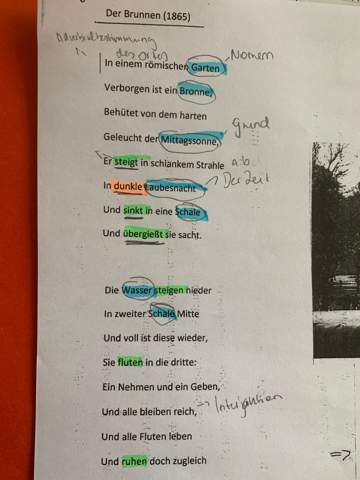 Der Brunnen (1865)
Adverbialbestimmung
des Ortes
Nomen
In einem römischen Garten
Verborgen ist ein Bronne,
Behütet von dem harten
Grund
Geleucht der Mittagssonne,
Er steigt in schlankem Strahle
In dunkle Laubesnacht
Der Zeit
Und sinkt in eine Schale
Und übergießt sie sacht.
Die Wasser steigen nieder
In zweiter Schale Mitte
Und voll ist diese wieder,
Sie fluten in die dritte:
Ein Nehmen und ein Geben,
Und alle bleiben reich,
Und alle Fluten leben
Und ruhen doch zugleich
=>